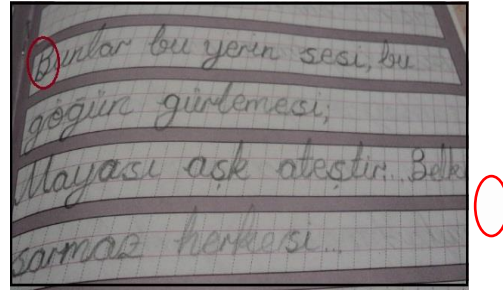 Bunlar bu yerin sesi, bu
göğün gürlemesi;
Mayası aşk ateştir... Belki
sarmaz herkesi...